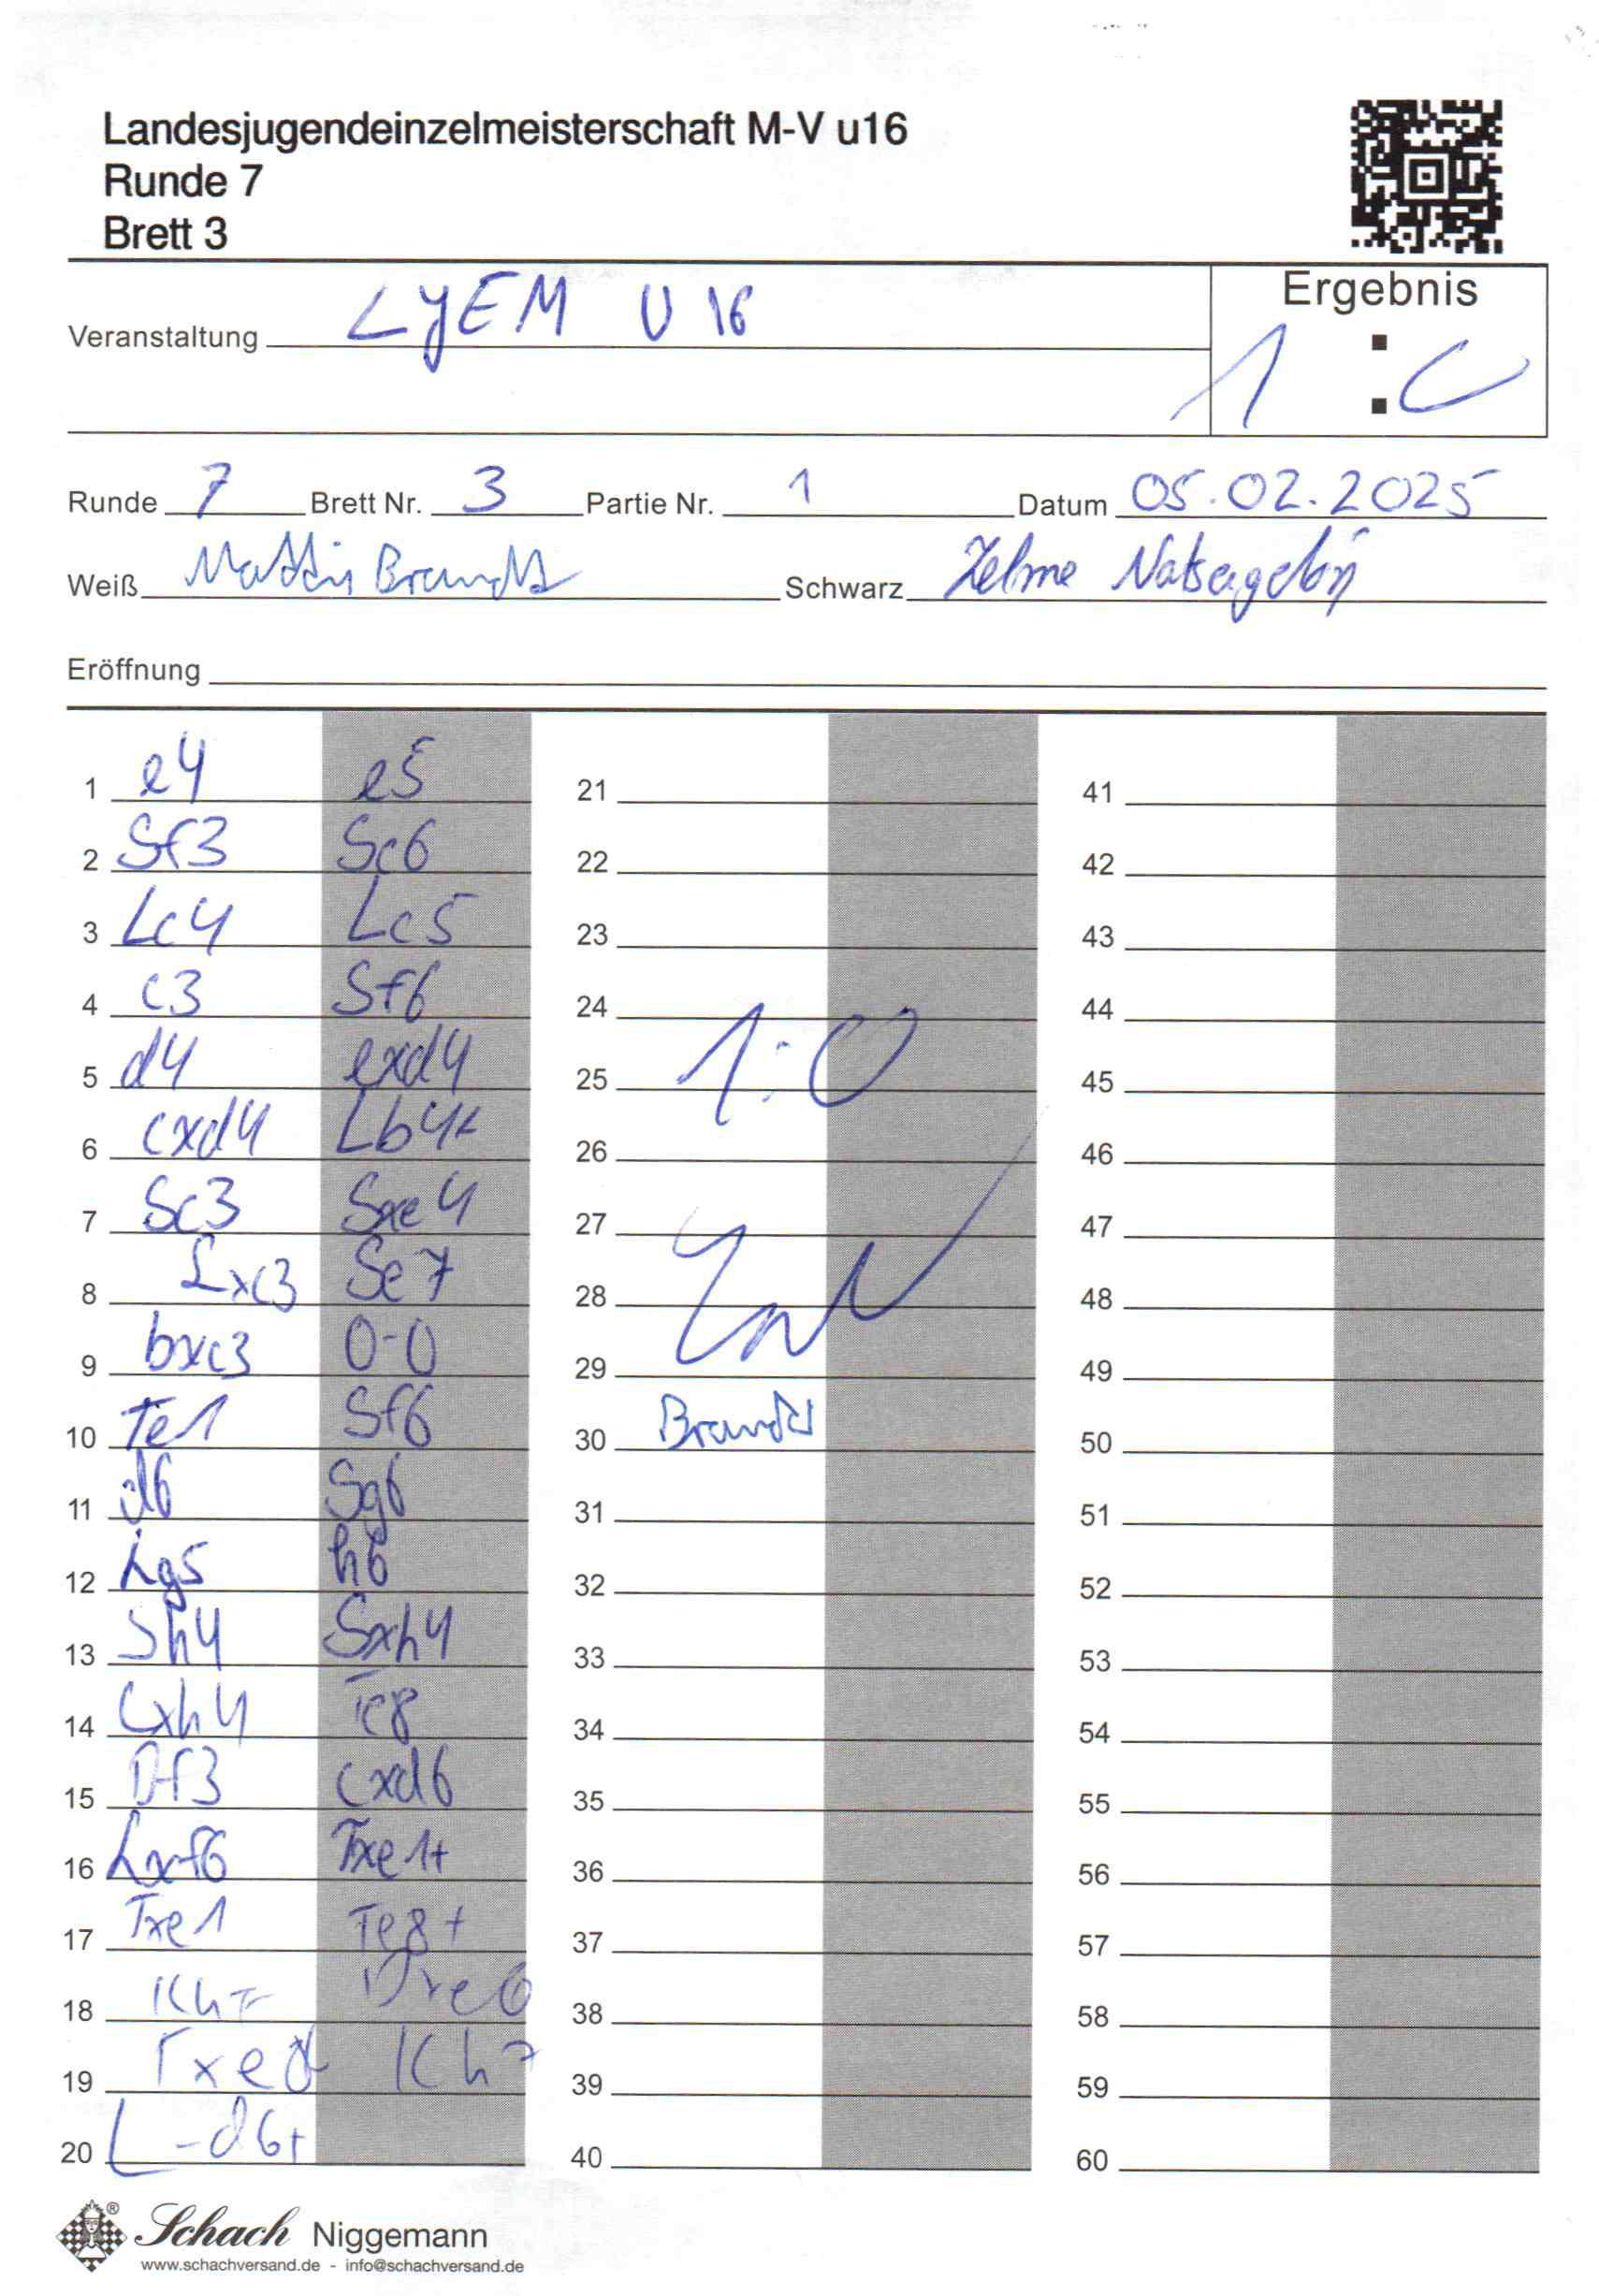 Landesjugendeinzelmeisterschaft M-V u16
Runde 7
Brett 3
Veranstaltung LJEM U16
Ergebnis
1 : 0
Runde 7 Brett Nr. 3 Partie Nr. 1 Datum 05.02.2025
Weiß Mattis Brandt Schwarz Zelme
Eröffnung
1 e4 e5 21 41
2 Sf3 Sc6 22 42
3 Lc4 Lc5 23 43
4 c3 Sf6 24 44
5 d4 exd4 25 1:0 45
6 cxd4 Lb4+ 26 46
7 Sc3 Sxe4 27 47
8 Lxc3 Se7 28 48
9 bxc3 0-0 29 49
10 Te1 Sf6 30 Brandt 50
11 d6 Sg6 31 51
12 Lg5 h6 32 52
13 Sh4 Sxh4 33 53
14 Lxh4 Te8 34 54
15 Df3 cxd6 35 55
16 Lxf6 Txe1+ 36 56
17 Txe1 Te8+ 37 57
18 38 58
19 Kh7 39 59
20 L-d6+ 40 60
Schach Niggemann
www.schachversand.de - info@schachversand.de